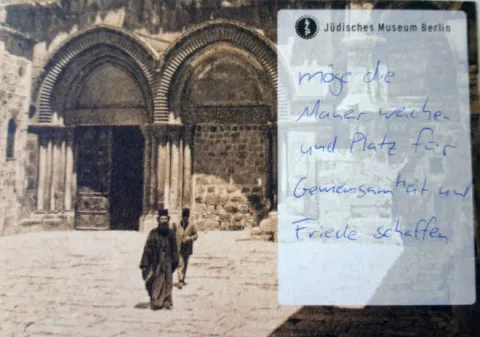 Jüdisches Museum Berlin
möge die
Mauer weichen
und Platz für
Gemeinsamkeit und
Friede schaffen